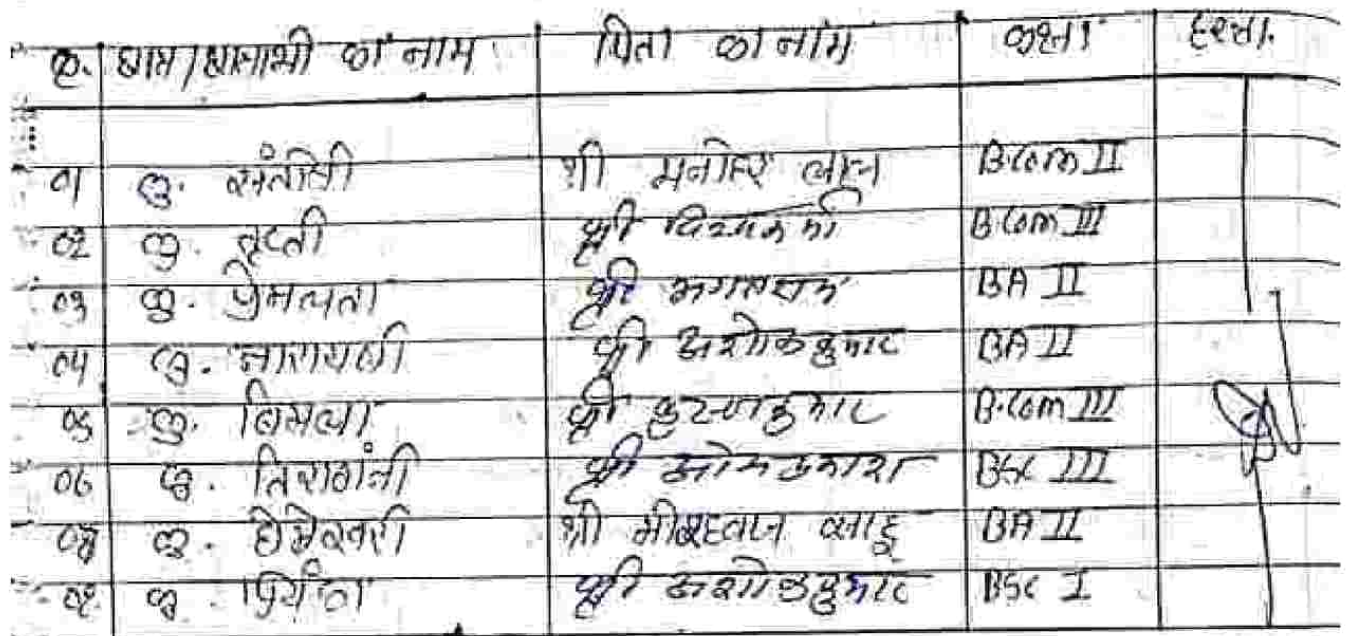 क्र. छात्र/छात्राओं का नाम पिता का नाम कक्षा हस्ता.
01 कु. संतोषी श्री मनोहर लाल B.Com II
02 कु. श्री विश्वकर्मा B.Com III
03 कु. प्रेमलता श्री भगतराम BA II
04 कु. नारायणी श्री अशोक कुमार BA II
05 कु. बिमला श्री कृष्णा कुमार B.Com III
06 कु. श्री ओमप्रकाश BSC III
कु. श्री साहू BA II
कु. श्री अशोक कुमार BSC I